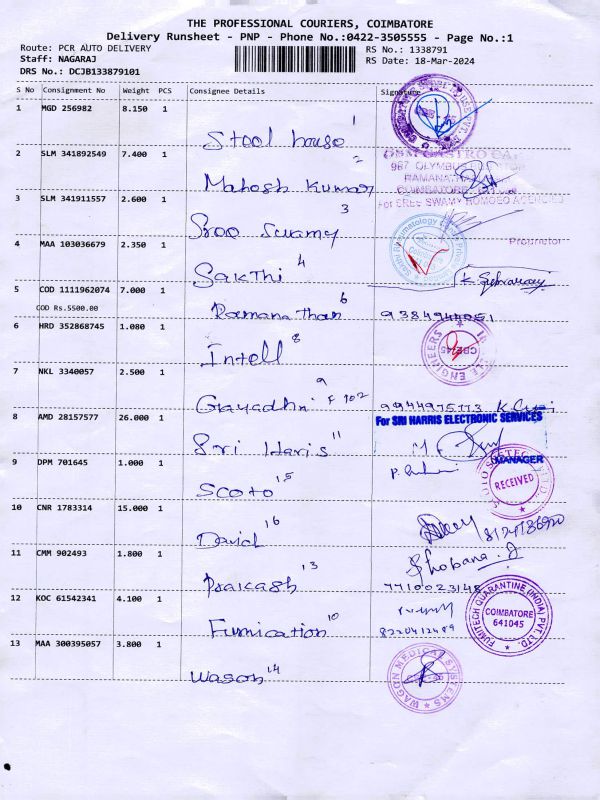 THE PROFESSIONAL COURIERS, COIMBATORE
Delivery Runsheet - PNP - Phone No.:0422-3505555 - Page No.:1
Route: PCR AUTO DELIVERY
RS No.: 1338791
Staff: NAGARAJ
RS Date: 18-Mar-2024
DRS No.: DCJB133879101
S No Consignment No Weight PCS Consignee Details Signature
1 MGD 256982 8.150 1
Steel house 1
2 SLM 341892549 7.400 1
Mahesh Kumar 2
RAMANATH
COIMBATORE
For SREE SWAMY ROMOEO AGENCIES
3 SLM 341911557 2.600 1
Sree Swamy 3
Proprietor
4 MAA 103036679 2.350 1
Sakthi 4
5 COD 1111962074 7.000 1
COD Rs.5500.00
Ramanathan 6
6 HRD 352868745 1.080 1
Intell 8
ENGINEERS
7 NKL 3340057 2.500 1
Gayadhri F 102 9
9944975773
8 AMD 28157577 26.000 1
For SRI HARRIS ELECTRONIC SERVICES
Sri Haris 11
MANAGER
9 DPM 701645 1.000 1
Scoto 15
RECEIVED
10 CNR 1783314 15.000 1
David 16
11 CMM 902493 1.800 1
Prakash 13
Shobana. J
7710023148
12 KOC 61542341 4.100 1
Fumication 10
8220412489
FUMITECH QUARANTINE (INDIA) PVT. LTD.
COIMBATORE
641045
13 MAA 300395057 3.800 1
Wason 14
WAGON MEDICAL SYSTEMS